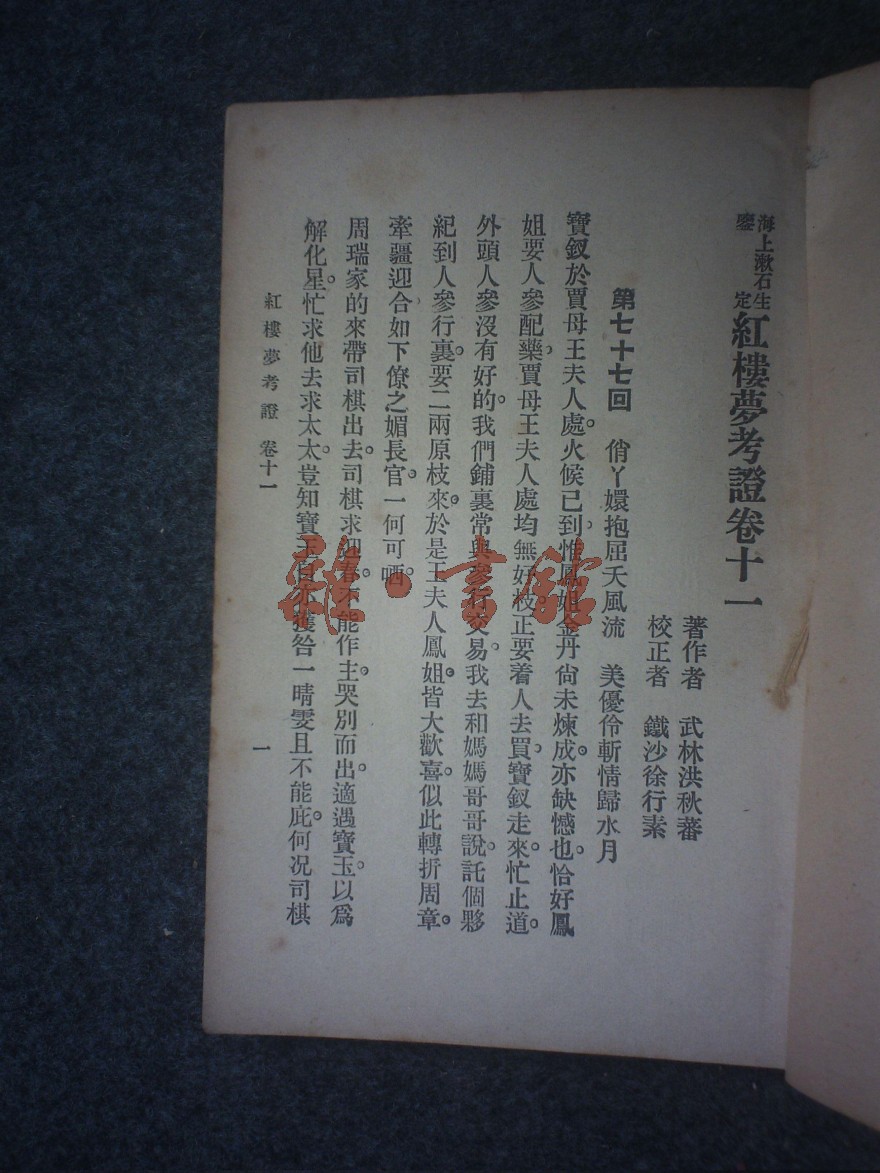 海上漱石生鑒定
紅樓夢考證卷十一
著作者 武林洪秋蕃
校正者 鐵沙徐行素
第七十七回 俏丫嬛抱屈夭風流 美優伶斬情歸水月
寶釵於賈母王夫人處。火候已到，惟鳳姐金丹尚未煉成。亦缺憾也。恰好鳳
姐要人參配藥，賈母王夫人處均無好枝，正要着人去買，寶釵走來。忙止道。
外頭人參沒有好的。我們鋪裏常與參行交易。我去和媽媽哥哥說。託個夥
紀到人參行裏。要二兩原枝來。於是王夫人鳳姐皆大歡喜。似此轉折周章。
牽疆迎合。如下僚之媚長官。一何可哂。
周瑞家的來帶司棋出去。司棋求迎春。不能作主。哭別而出。適遇寶玉。以爲
解化星。忙求他去求太太。豈知寶玉自亦獲咎。一晴雯且不能庇。何况司棋
紅樓夢考證 卷十一
一
雜·書館